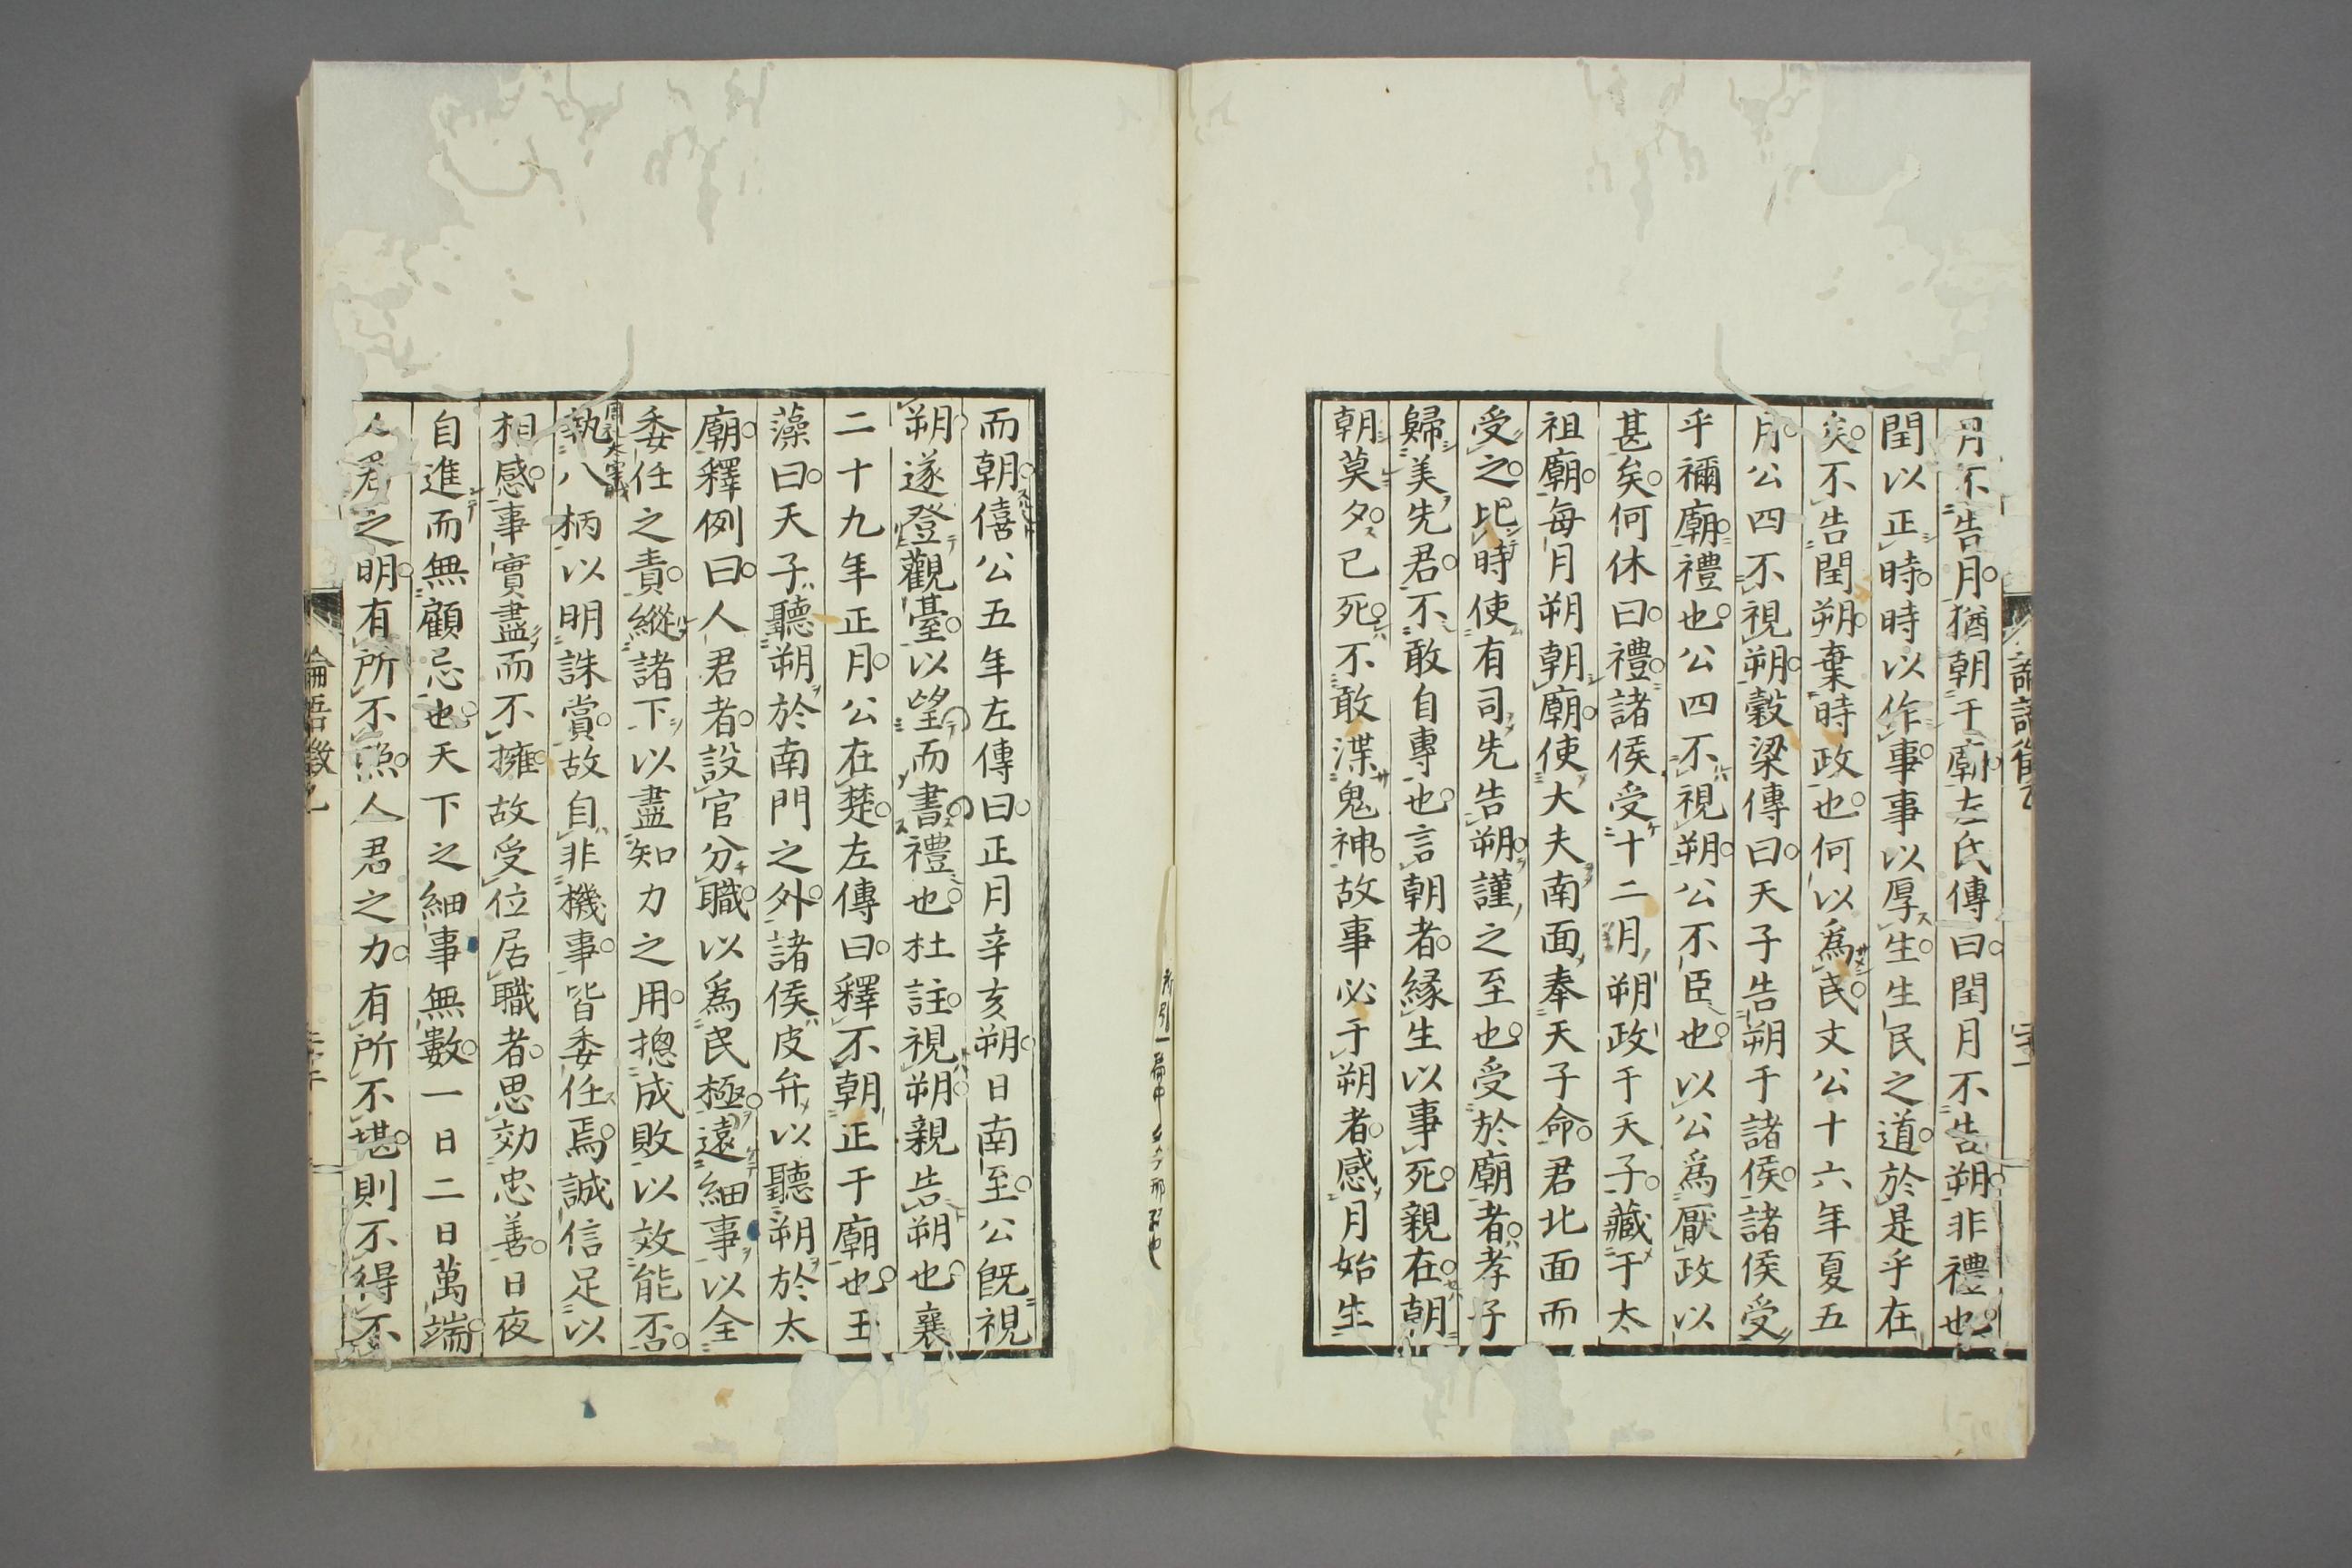 月不告月猶朝于廟左氏傳曰閏月不告朔非禮也
閏以正時時以作事事以厚生生民之道於是乎在
矣不告閏朔棄時政也何以爲民文公十六年夏五
月公四不視朔穀梁傳曰天子告朔于諸侯諸侯受
乎禰廟禮也公四不視朔公不臣也以公爲厭政以
甚矣何休曰禮諸侯受十二月朔政于天子藏于太
祖廟每月朔朝廟使大夫南面奉天子命君北面而
受之比時使有司先告朔謹之至也受於廟者孝子
歸美先君不敢自專也言朝者緣生以事死親在朝
朝莫夕已死不敢渫鬼神故事必于朔者感月始生
而朝僖公五年左傳曰正月辛亥朔日南至公既視
朔遂登觀臺以望而書禮也杜註視朔親告朔也襄
二十九年正月公在楚左傳曰釋不朝正于廟也玉
藻曰天子聽朔於南門之外諸侯皮弁以聽朔於太
廟釋例曰人君者設官分職以爲民極遠細事以全
委任之責縱諸下以盡知力之用摠成敗以效能否
執八柄以明誅賞故自非機事皆委任焉誠信足以
相感事實盡而不擁故受位居職者思効忠善日夜
自進而無顧忌也天下之細事無數一日二日萬端
人君之明有所不照人君之力有所不堪則不得不
論語徵乙